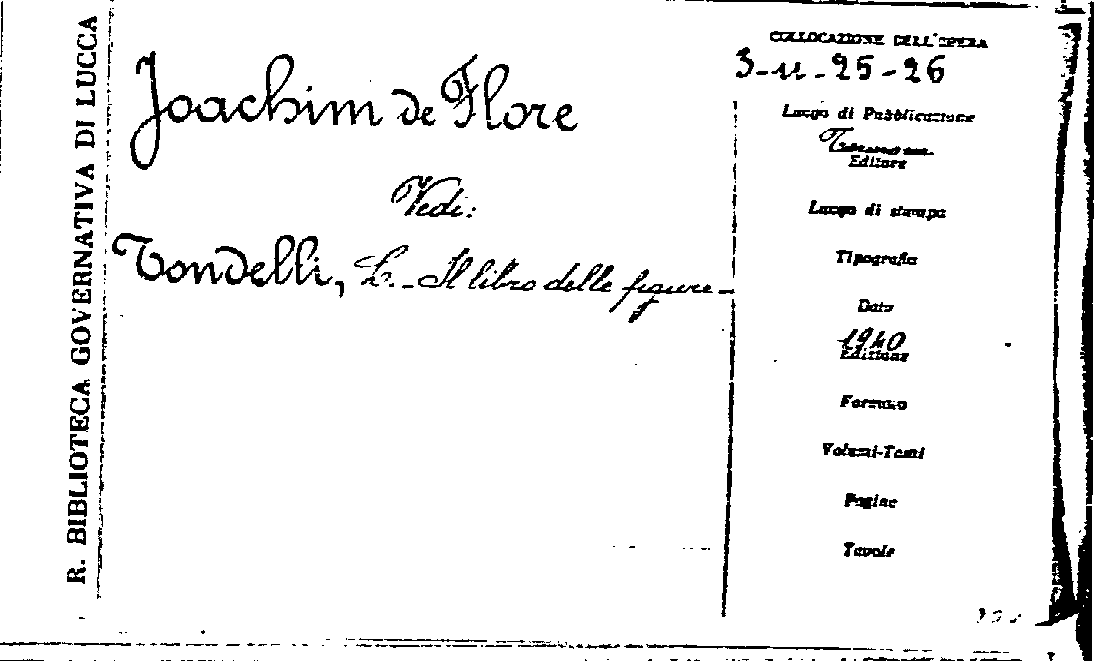 R. BIBLIOTECA GOVERNATIVA DI LUCCA
Joachim de Flore
Vedi:
Tondelli, L. - Il libro delle figure -
COLLOCAZIONE DELL'OPERA
3-11-25-26
Luogo di Pubblicazione
Editore
Luogo di stampa
Tipografia
Data
1940
Edizione
Formato
Volumi-Tomi
Pagine
Tavole